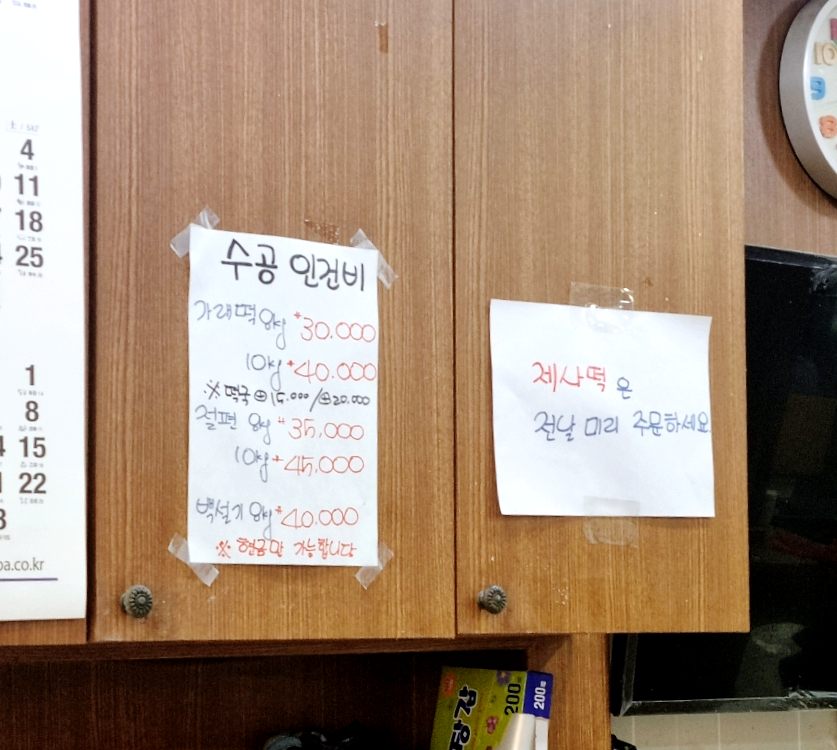 수공 인건비
가래떡 8kg *30.000
10kg *40.000
※ 떡국 ⊕15.000/⊕20.000
절편 8kg *35,000
10kg *45,000
백설기 8kg *40.000
※ 현금만 가능합니다
제사떡은
전날 미리 주문하세요
土
4
11
18
25
1
8
15
22
a.co.kr
200
200매
9
8